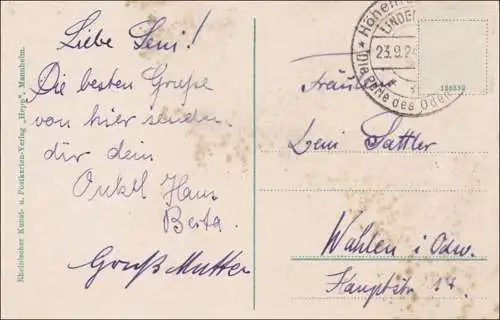 Liebe Leni!
Die besten Grüße
von hier senden
dir dein
Onkel Hans
Berta.
Großmutter
Rheinischer Kunst- u. Postkarten-Verlag „Hepp", Mannheim.
LINDENF
23.9.2
Die Perle des Oden
136352
Fräulein
Leni Sattler
Wahlen i Odw.
Hauptstr 14.